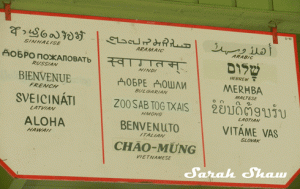 SINHALESE
ДОБРО ПОЖАЛОВАТЬ
RUSSIAN
BIENVENUE
FRENCH
SVEICINĀTI
LATVIAN
ALOHA
HAWAII
ARAMAIC
स्वागतम्
HINDI
ДОБРЕ ДОШЛИ
BULGARIAN
ZOO SAB TOG TXAIS
HMONG
BENVENUTO
ITALIAN
CHÀO-MỪNG
VIETNAMESE
أهلا وسهلا
ARABIC
שלום
HEBREW
MERHBA
MALTESE
LAOTIAN
VITÁME VAS
SLOVAK
Sarah Shaw